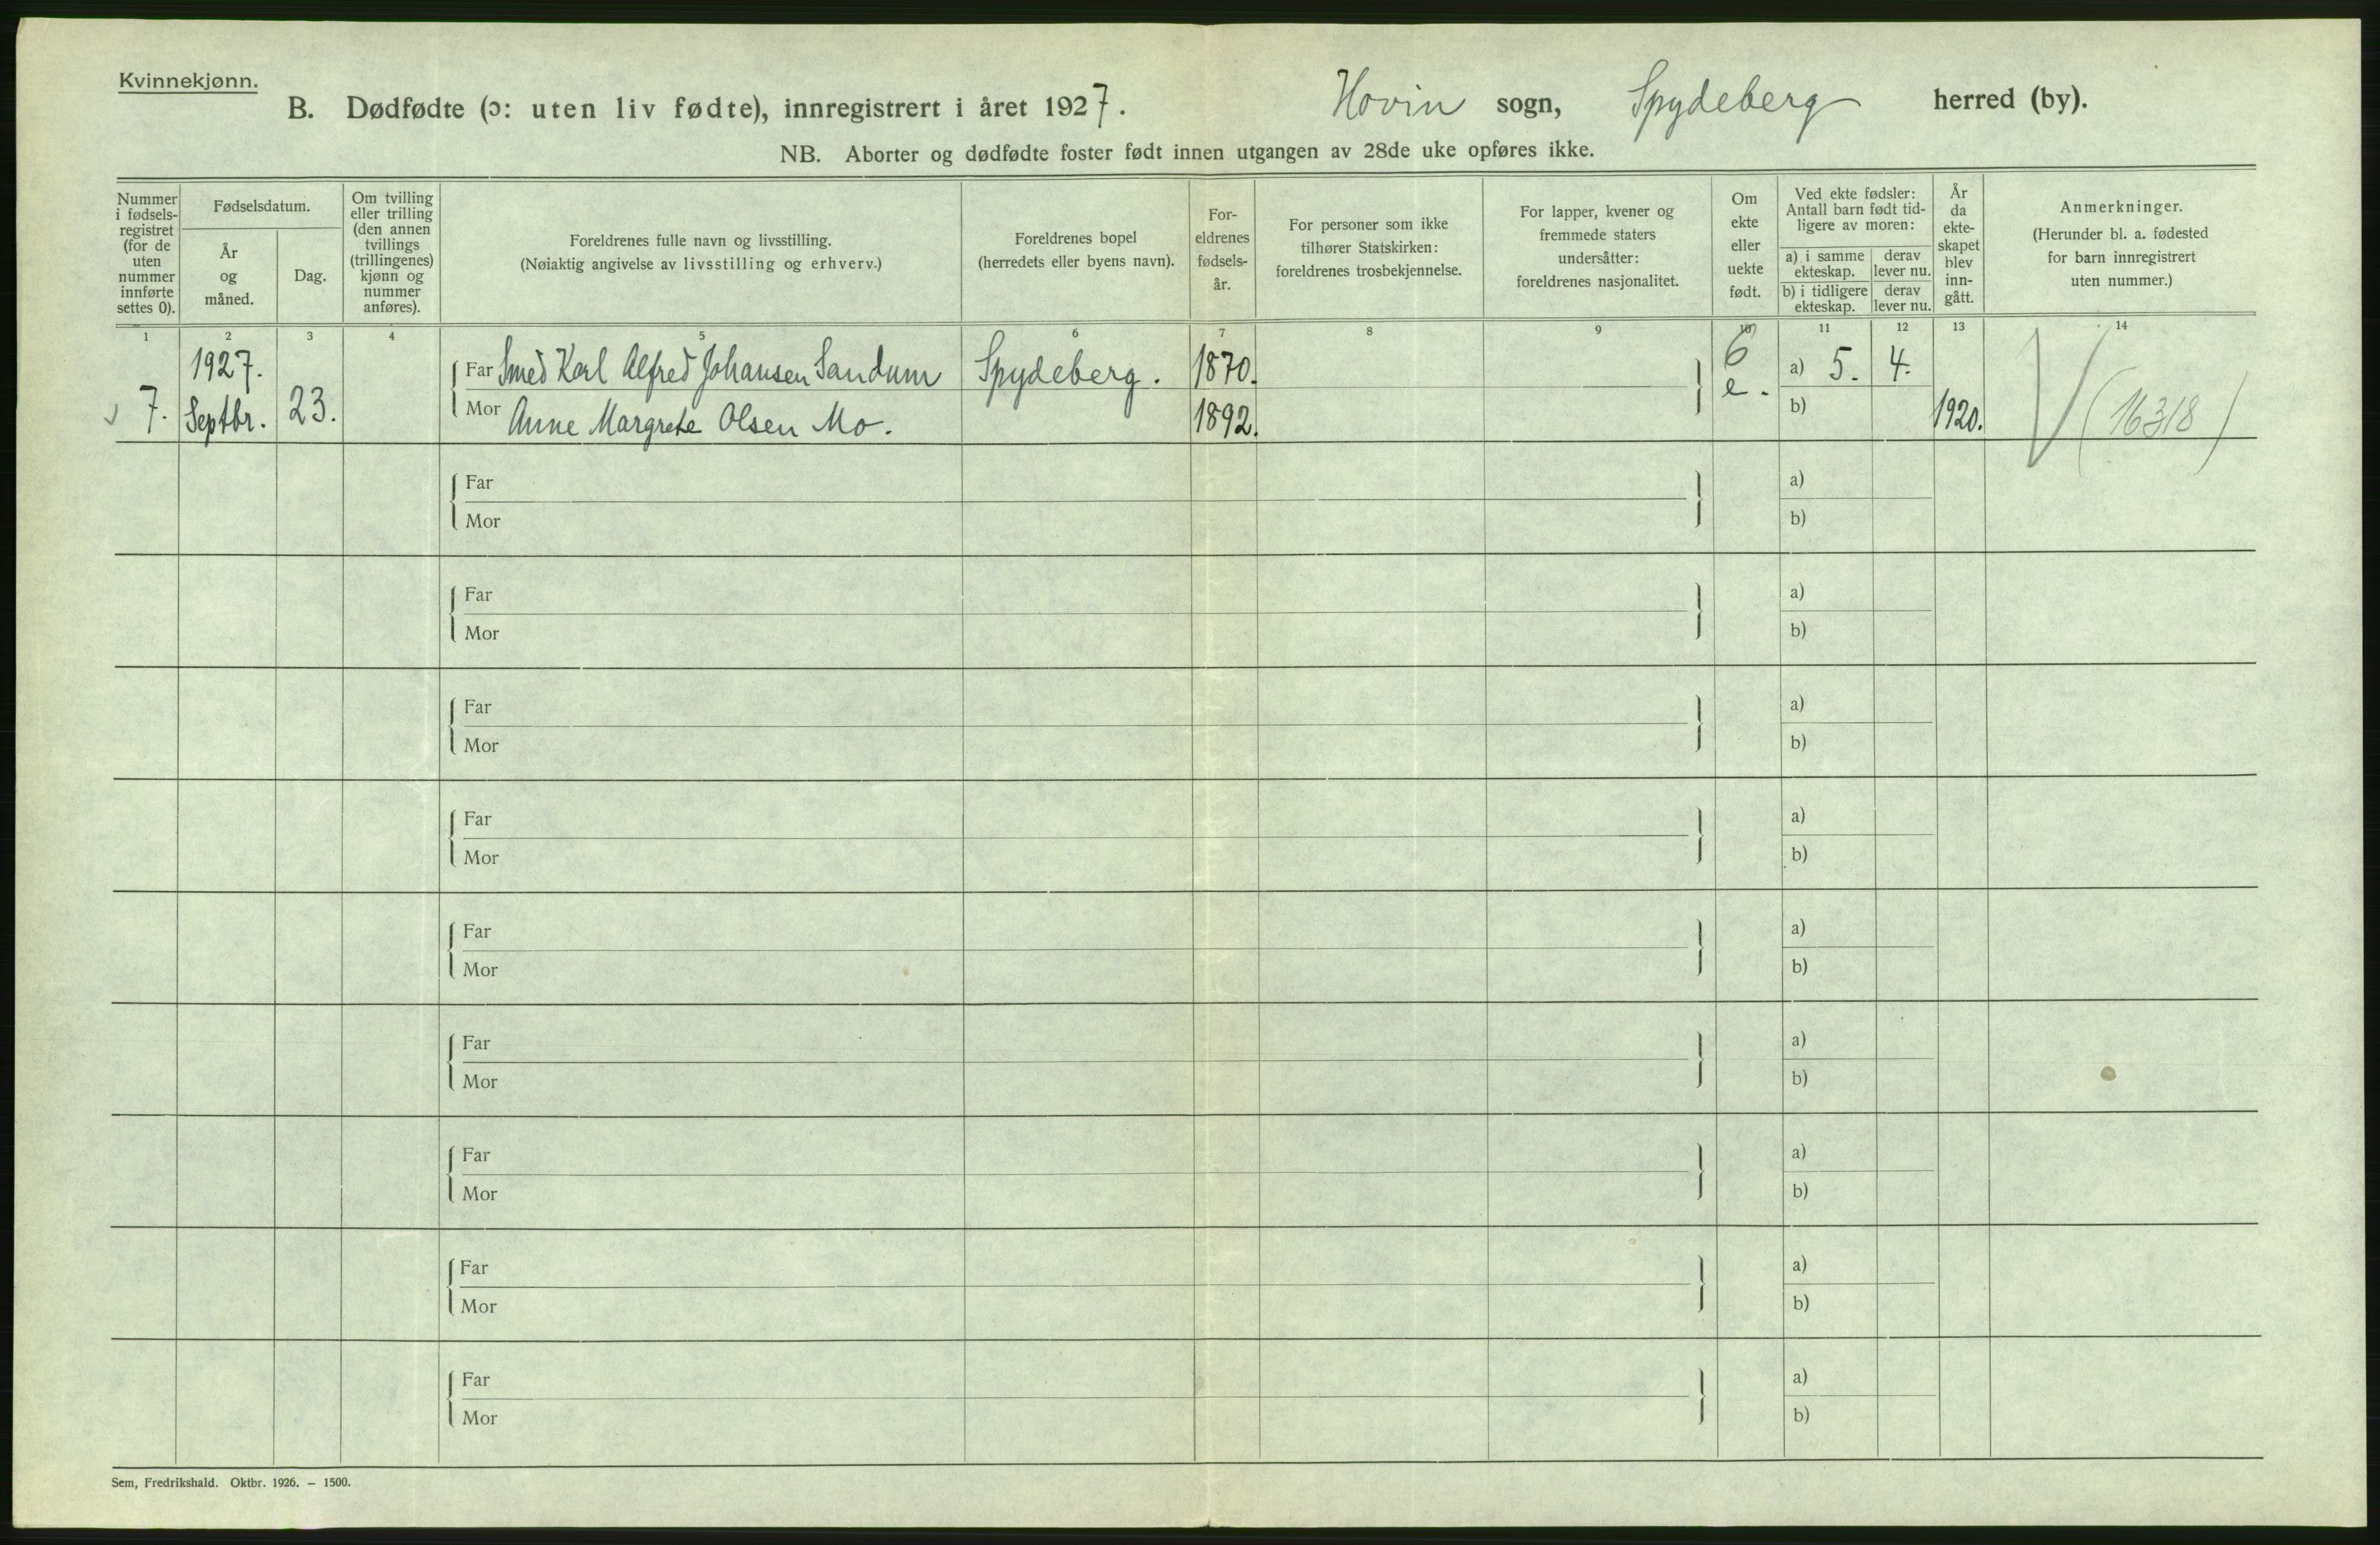 Kvinnekjønn.
B. Dødfødte (ɔ: uten liv fødte), innregistrert i året 1927. Hovin sogn, Spydeberg herred (by).
NB. Aborter og dødfødte foster født innen utgangen av 28de uke opføres ikke.
Nummer
i fødsels-
registret
(for de
uten
nummer
innførte
settes 0).
Fødselsdatum.
År
og
måned.
Dag.
Om tvilling
eller trilling
(den annen
tvillings
(trillingenes)
kjønn og
nummer
anføres).
Foreldrenes fulle navn og livsstilling.
(Nøiaktig angivelse av livsstilling og erhverv.)
Foreldrenes bopel
(herredets eller byens navn).
For-
eldrenes
fødsels-
år.
For personer som ikke
tilhører Statskirken:
foreldrenes trosbekjennelse.
For lapper, kvener og
fremmede staters
undersåtter:
foreldrenes nasjonalitet.
Om
ekte
eller
uekte
født.
Ved ekte fødsler:
Antall barn født tid-
ligere av moren:
a) i samme
ekteskap.
derav
lever nu.
b) i tidligere
ekteskap.
derav
lever nu.
År
da
ekte-
skapet
blev
inn-
gått.
Anmerkninger.
(Herunder bl. a. fødested
for barn innregistrert
uten nummer.)
1 2 3 4 5 6 7 8 9 10 11 12 13 14
1927. Far Smed Karl Alfred Johansen Sandum Spydeberg. 1870. 6 a) 5. 4.
7. Septbr. 23. Mor Anne Margrete Olsen Mo. 1892. e. b) 1920. (16318)
Far a)
Mor b)
Far a)
Mor b)
Far a)
Mor b)
Far a)
Mor b)
Far a)
Mor b)
Far a)
Mor b)
Far a)
Mor b)
Far a)
Mor b)
Far a)
Mor b)
Sem, Fredrikshald. Oktbr. 1926. – 1500.